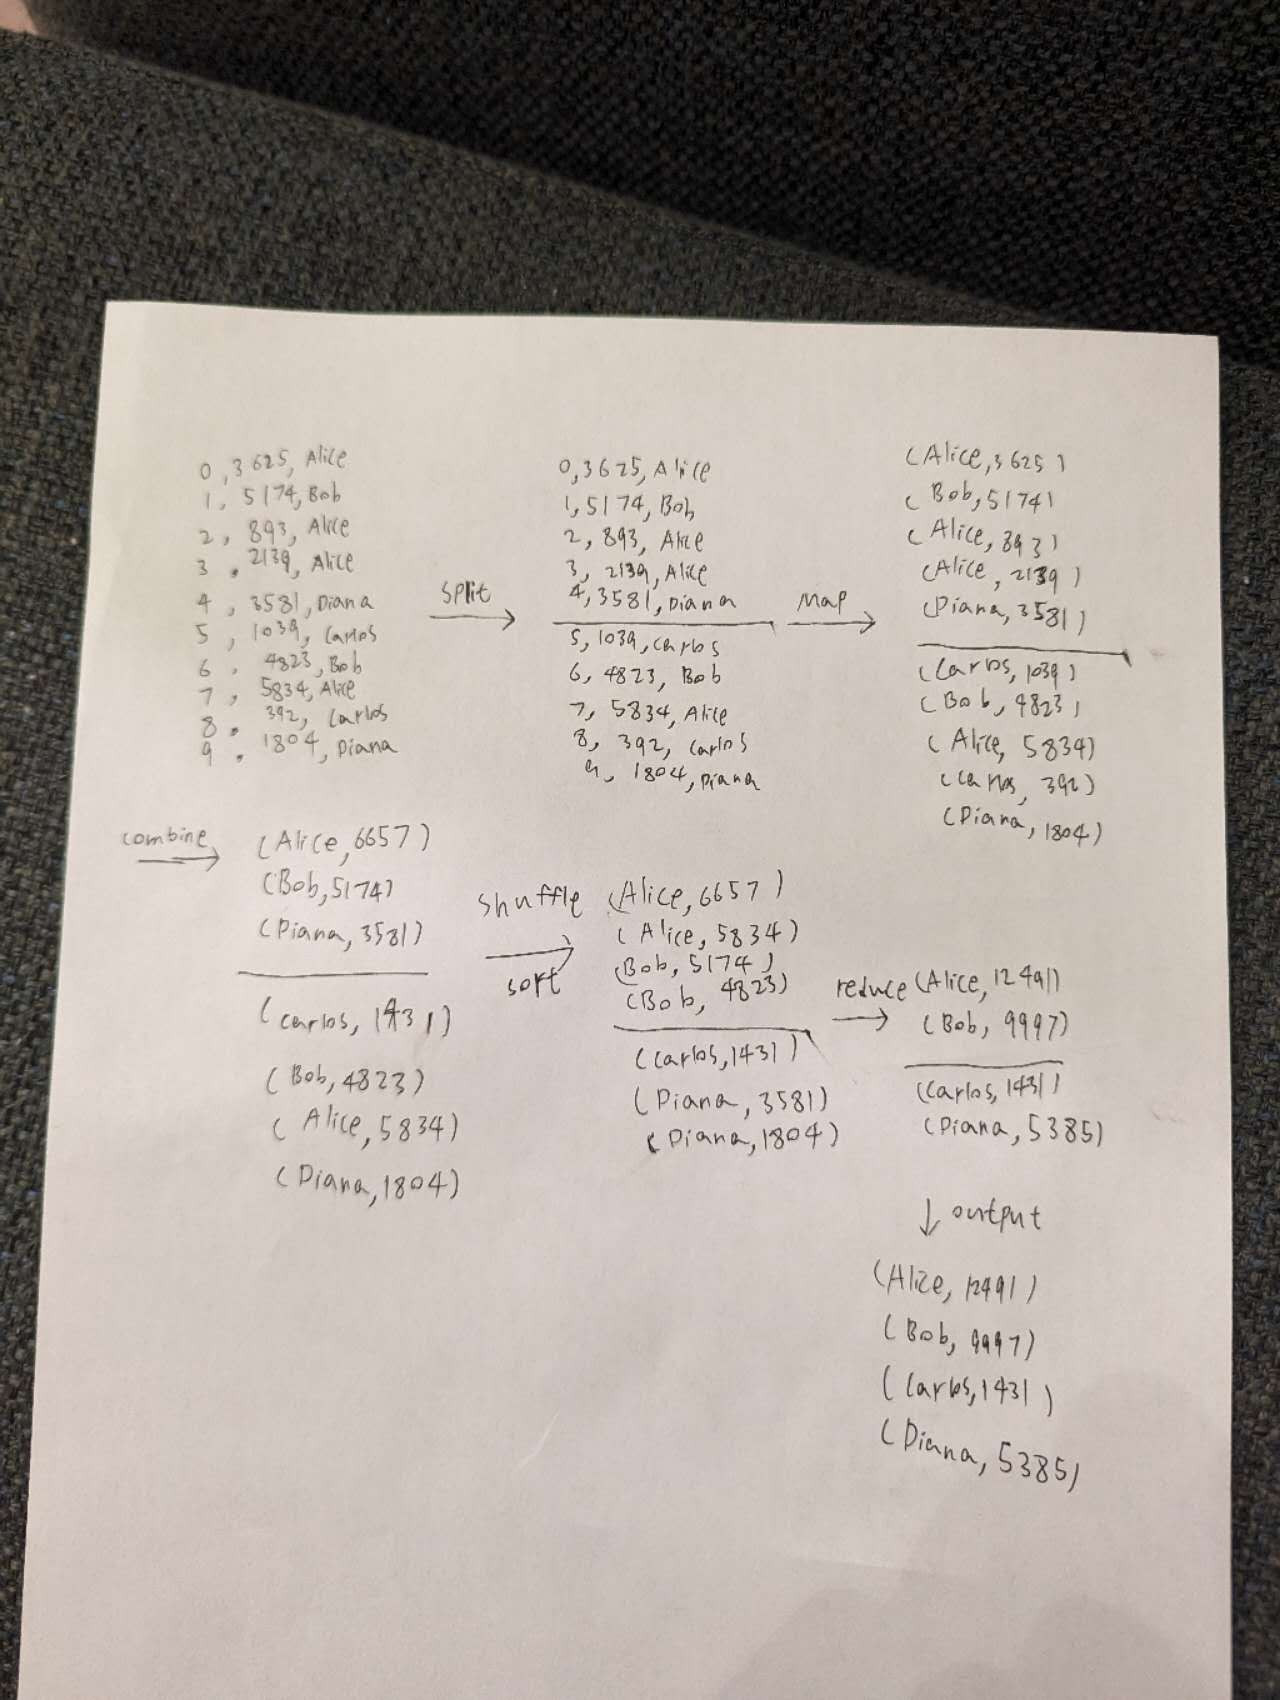 0, 3625, Alice
1, 5174, Bob
2, 893, Alice
3, 2139, Alice
4, 3581, Diana
5, 1039, Carlos
6, 4823, Bob
7, 5834, Alice
8, 392, Carlos
9, 1804, Diana
split
0, 3625, Alice
1, 5174, Bob
2, 893, Alice
3, 2139, Alice
4, 3581, Diana
5, 1039, Carlos
6, 4823, Bob
7, 5834, Alice
8, 392, Carlos
9, 1804, Diana
Map
(Alice, 3625)
(Bob, 5174)
(Alice, 893)
(Alice, 2139)
(Diana, 3581)
(Carlos, 1039)
(Bob, 4823)
(Alice, 5834)
(Carlos, 392)
(Diana, 1804)
combine
(Alice, 6657)
(Bob, 5174)
(Diana, 3581)
(Carlos, 1431)
(Bob, 4823)
(Alice, 5834)
(Diana, 1804)
shuffle
sort
(Alice, 6657)
(Alice, 5834)
(Bob, 5174)
(Bob, 4823)
(Carlos, 1431)
(Diana, 3581)
(Diana, 1804)
reduce
(Alice, 12491)
(Bob, 9997)
(Carlos, 1431)
(Diana, 5385)
output
(Alice, 12491)
(Bob, 9997)
(Carlos, 1431)
(Diana, 5385)